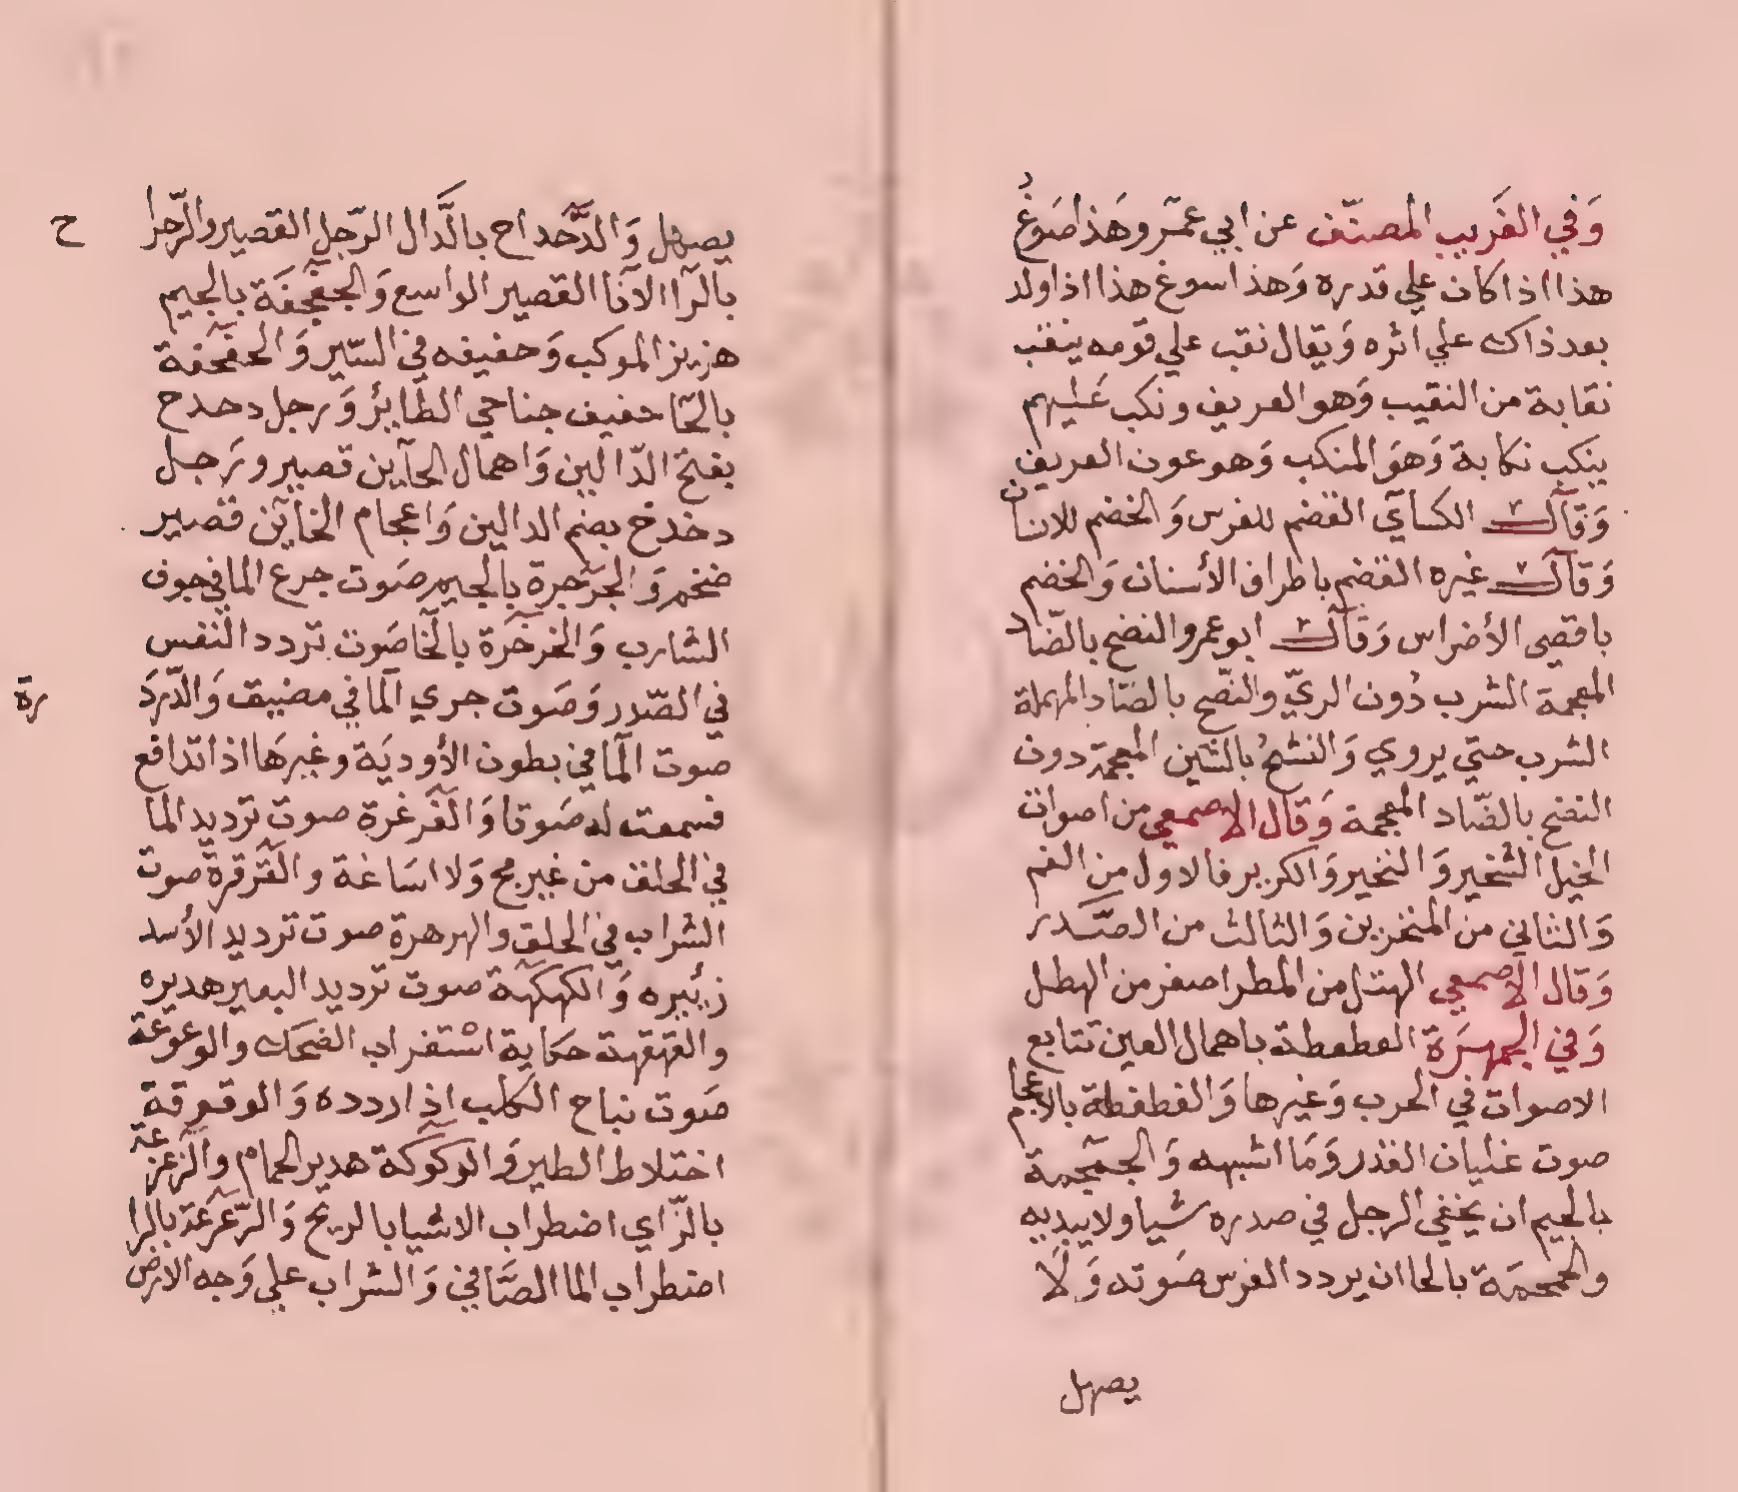 وَفي الغَريب المصنّف عن ابي عمَرو وَهَذا صَوغُ
هذا اذا كان علي قدره وَهذا سوغ هذا اذا ولد
بعد ذاك علي اثره وَيقال نقب علي قومه ينقب
نقابة من النقيب وَهو العريف ونكب عَليهم
ينكب نكابة وَهوَ المنكب وَهو عون العريف
وَقال الكساَي القضم للفرس وَالخضم للانسان
وَقال غيره القضم باطراف الأسنان وَالخضم
باقصي الأضراس وَقال ابو عمرو النضح بالضّاد
المعجمة الشرب دُون الريّ والنّصح بالصّاد المهملة
الشرب حتي يروي وَالنشحُ بالشين المعجمة دون
النضح بالضّاد المعجمة وَقال الاصمعي من اصوات
الخيل الشخير وَالنخير وَالكرير فالاول من الفم
وَالثاني من المنخرين وَالثالث من الصّدر
وَقال الاصمعي الهتل من المطر اصغر من الهطل
وَفي الجمهرَة العطعطة باهمال العين تتابع
الاصوات في الحرب وَغيرها وَالغطغطة بالاعجام
صوت غليان القدر وَمَا اشبهه وَالجمجمة
بالجيم ان يخفي الرجل في صدره شيا ولا يبديه
والحمحمَة بالحا ان يردد الفرس صَوته وَلَا
يصهل
يصهل وَالدَّحداح بالدَّال الرّجل القصير والرّحرا
ح
بالرَّا الانَا القصير الواسع وَالجفجفَة بالجيم
هزيز الموكب وَحفيفه في السّير وَالحفحفة
بالحَا حفيف جناحي الطَايرُ وَرجل دحدح
بفتح الدّالين وَاهمال الحاين قصير ورَجل
دخدخ بضم الدالين وَاعجام الخاين قصير
ضخم وَالجرجرة بالجيم صَوت جرع الما في جوف
الشارب وَالخرخَرة بالخَا صَوت تردد النفس
في الصّدر وَصَوت جري الما في مضيق وَالدّردَ
رة
صوت المَا في بطون الأوديَة وغيرهَا اذا تدافع
فسمعت له صَوتا وَالغَرغرة صوت ترديد الما
في الحلق من غير مج وَلا اسَاغة والقرقرة صوت
الشراب في الحلق والهرهرة صوت ترديد الأسد
زئيره وَالكهكهة صوت ترديد البعير هديره
والقهقهة حكاية استغراب الضحك والوعوعة
صَوت نباح الكلب اذا ردده وَالوقوقة
اختلاط الطير وَالوكوكة هدير الحمام والزعزعة
بالزّاي اضطراب الاشيا بالريح وَالرّعرَعة بالرا
اضطراب الما الصَّافي وَالشراب علي وَجه الارض